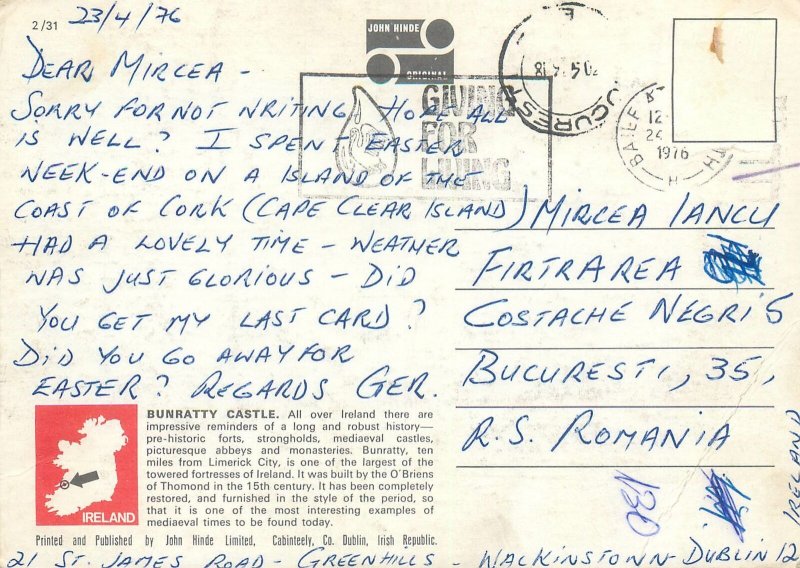 23/4/76
2/31
JOHN HINDE
ORIGINAL
DEAR MIRCEA -
SORRY FOR NOT WRITING HOPE ALL
IS WELL? I SPENT EASTER
WEEK-END ON A ISLAND OF THE
COAST OF CORK (CAPE CLEAR ISLAND)
HAD A LOVELY TIME - WEATHER
WAS JUST GLORIOUS - DID
YOU GET MY LAST CARD?
DID YOU GO AWAY FOR
EASTER? REGARDS GER.
GIVING
FOR
LIVING
1976
MIRCEA IANCU
FIRTRAREA
COSTACHE NEGRI 5
BUCURESTI, 35,
R.S. ROMANIA
BUNRATTY CASTLE. All over Ireland there are
impressive reminders of a long and robust history—
pre-historic forts, strongholds, mediaeval castles,
picturesque abbeys and monasteries. Bunratty, ten
miles from Limerick City, is one of the largest of the
towered fortresses of Ireland. It was built by the O'Briens
of Thomond in the 15th century. It has been completely
restored, and furnished in the style of the period, so
that it is one of the most interesting examples of
mediaeval times to be found today.
IRELAND
Printed and Published by John Hinde Limited, Cabinteely, Co. Dublin, Irish Republic.
21 ST. JAMES ROAD - GREENHILLS - WALKINSTOWN - DUBLIN 12
IRELAND